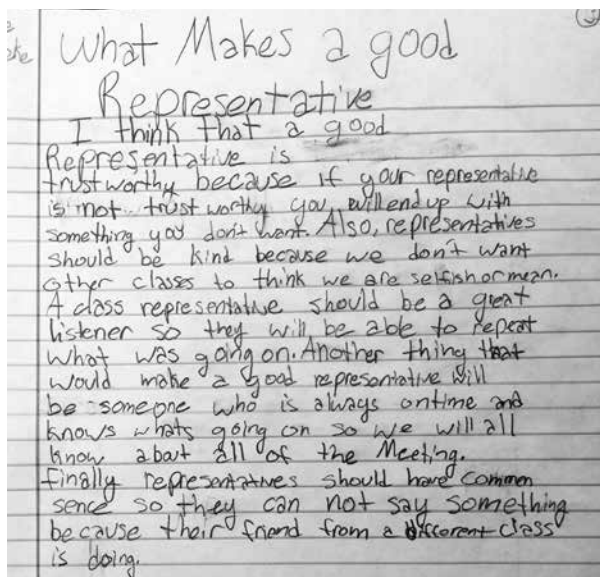 What Makes a good
Representative
I think that a good
Representative is
trustworthy because if your representative
is not trustworthy you will end up with
something you don't want. Also, representatives
should be kind because we don't want
other classes to think we are selfish or mean.
A class representative should be a great
listener so they will be able to repeat
what was going on. Another thing that
would make a good representative will
be someone who is always ontime and
knows whats going on so we will all
know about all of the Meeting.
finally representatives should have common
sence so they can not say something
because their friend from a different class
is doing.